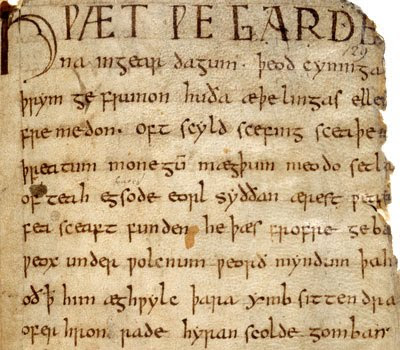 HǷÆT ǷE GARDE
na ingear dagum. þeod cyninga
þrym ge frunon huða æþelingas elle
fremedon. oft scyld scefing sceaþe
þreatum monegū mægþum meodo setla
of teah egsode eorl syððan ærest ƿear
fea sceaft funden he þæs frofre geba
ƿeox under ƿolcnum ƿeorð myndum þah
oðꝥ him æghƿylc þara ymb sittendra
ofer hron rade hyran scolde gomban